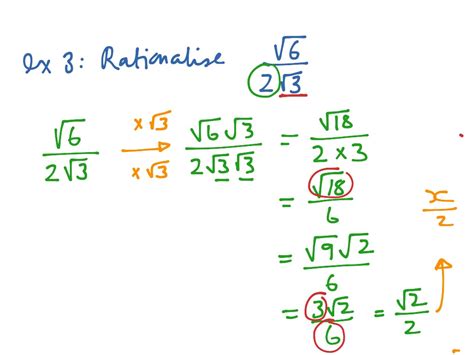 ex 3: Rationalise √6/2√3
√6/2√3 ×√3 ×√3 √6√3/2√3√3 = √18/2×3
= √18/6 x/2
= √9√2/6
= 3√2/6 = √2/2